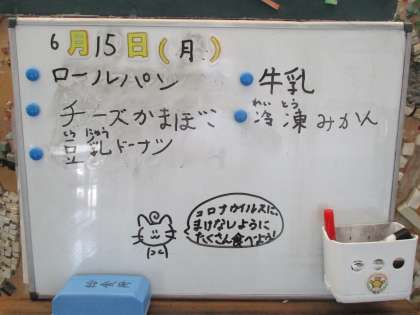 6月15日(月)
ロールパン
チーズかまぼこ
とうにゅう
豆乳ドーナツ
牛乳
れいとう
冷凍みかん
コロナウイルスに
まけなしように
たくさん食べよう!